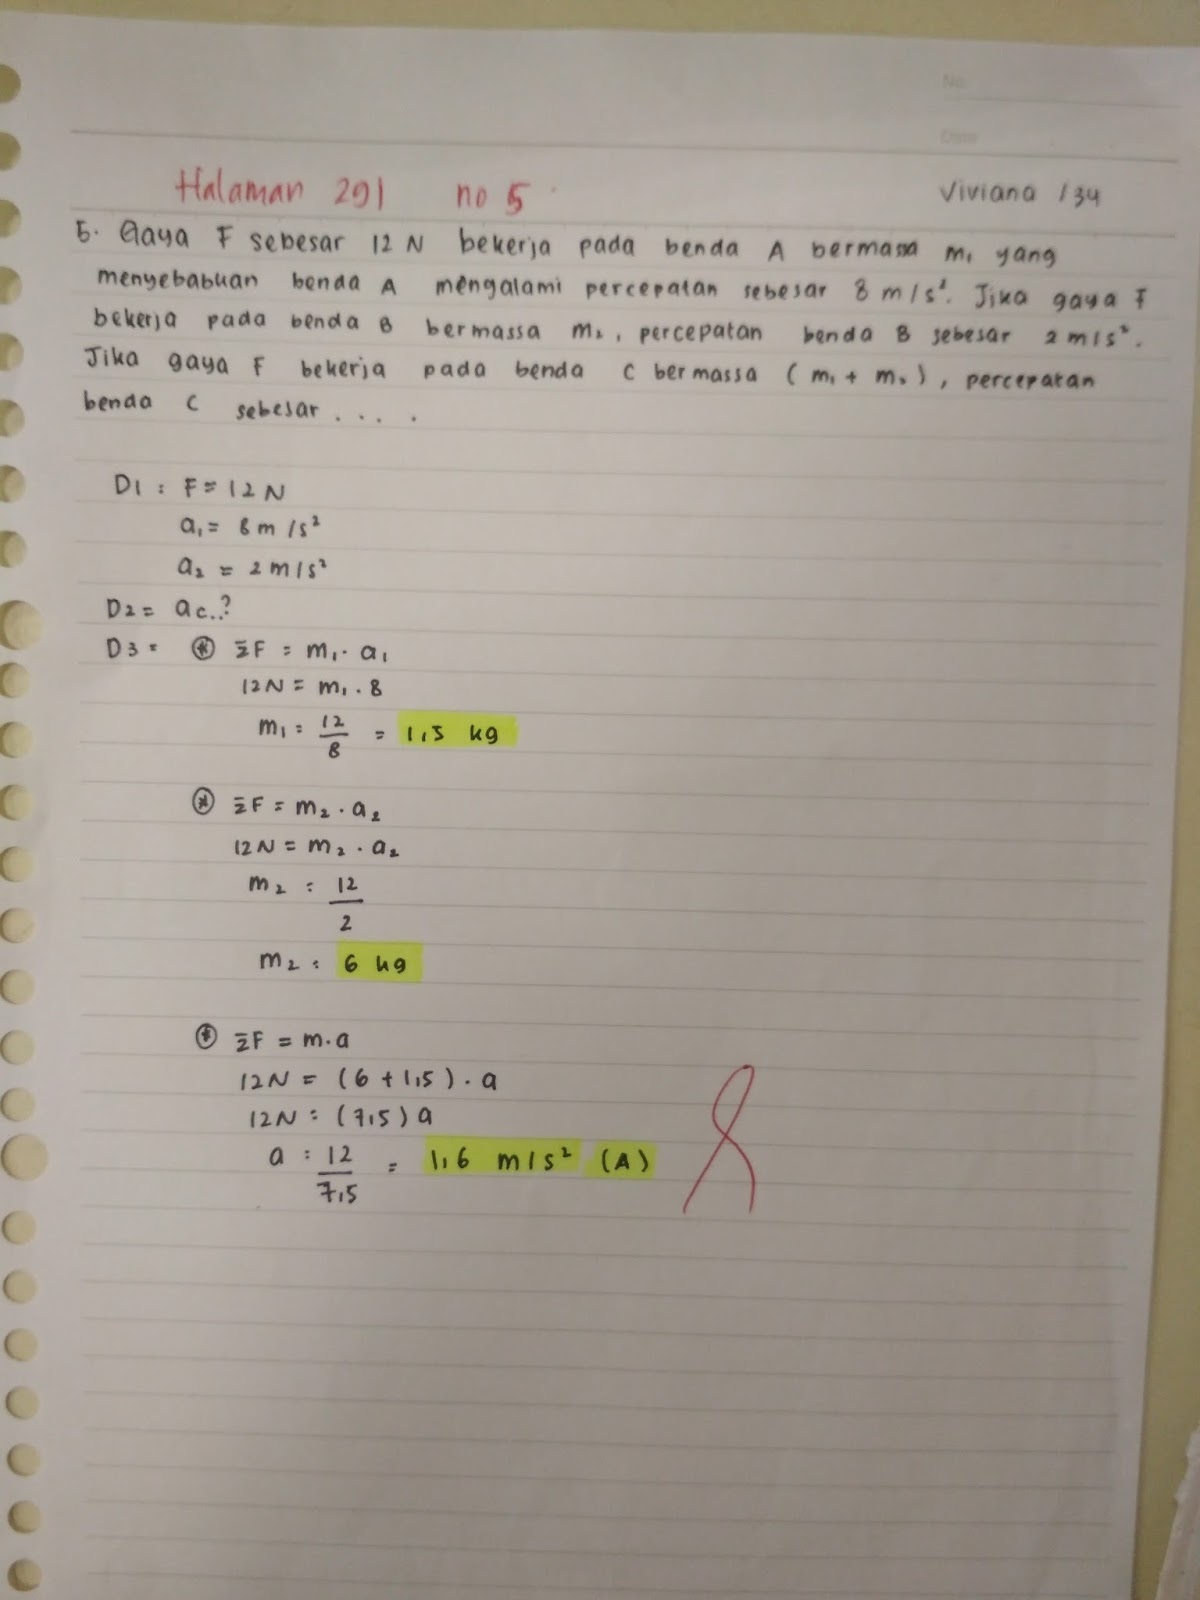 No
Date
Halaman 291 no 5
Viviana / 34
5. Gaya F sebesar 12 N bekerja pada benda A bermassa m₁ yang
menyebabkan benda A mengalami percepatan sebesar 8 m/s². Jika gaya F
bekerja pada benda B bermassa m₂, percepatan benda B sebesar 2 m/s².
Jika gaya F bekerja pada benda C bermassa (m₁ + m₂), percepatan
benda C sebesar . . . .
D1 : F = 12 N
a₁ = 8 m/s²
a₂ = 2 m/s²
D2 = ac..?
D3 = * ΣF = m₁ . a₁
12N = m₁ . 8
m₁ = 12/8 = 1,5 kg
* ΣF = m₂ . a₂
12N = m₂ . a₂
m₂ : 12/2
m₂ : 6 kg
* ΣF = m.a
12N = (6 + 1,5) . a
12N : (7,5) a
a : 12/7,5 = 1,6 m/s² (A)